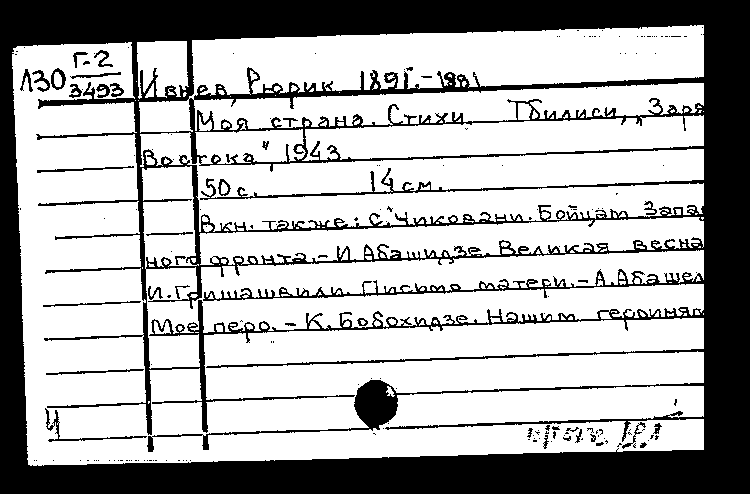 130 Г-2
3493 Ивнев, Рюрик 1891.-1981
Моя страна. Стихи. Тбилиси, „Заря
Востока", 1943.
50 с. 14 см.
В кн. также: С. Чиковани. Бойцам Запад
ного фронта.-И.Абашидзе. Великая весна
И.Гришашвили. Письмо матери.-А.Абашел
Мое перо.-К.Бобохидзе. Нашим героиням